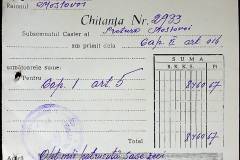 Raionul Mostovoi
Chitanța Nr. 2933
Subsemnatul Casier al Pretura Mostovoi
am primit dela Cap. II art 016
următoarele sume:
SUMA
Pentru
Cap. 1 art 5
8460 67
Total 8460 67
Opt mii patrusute șase zeci